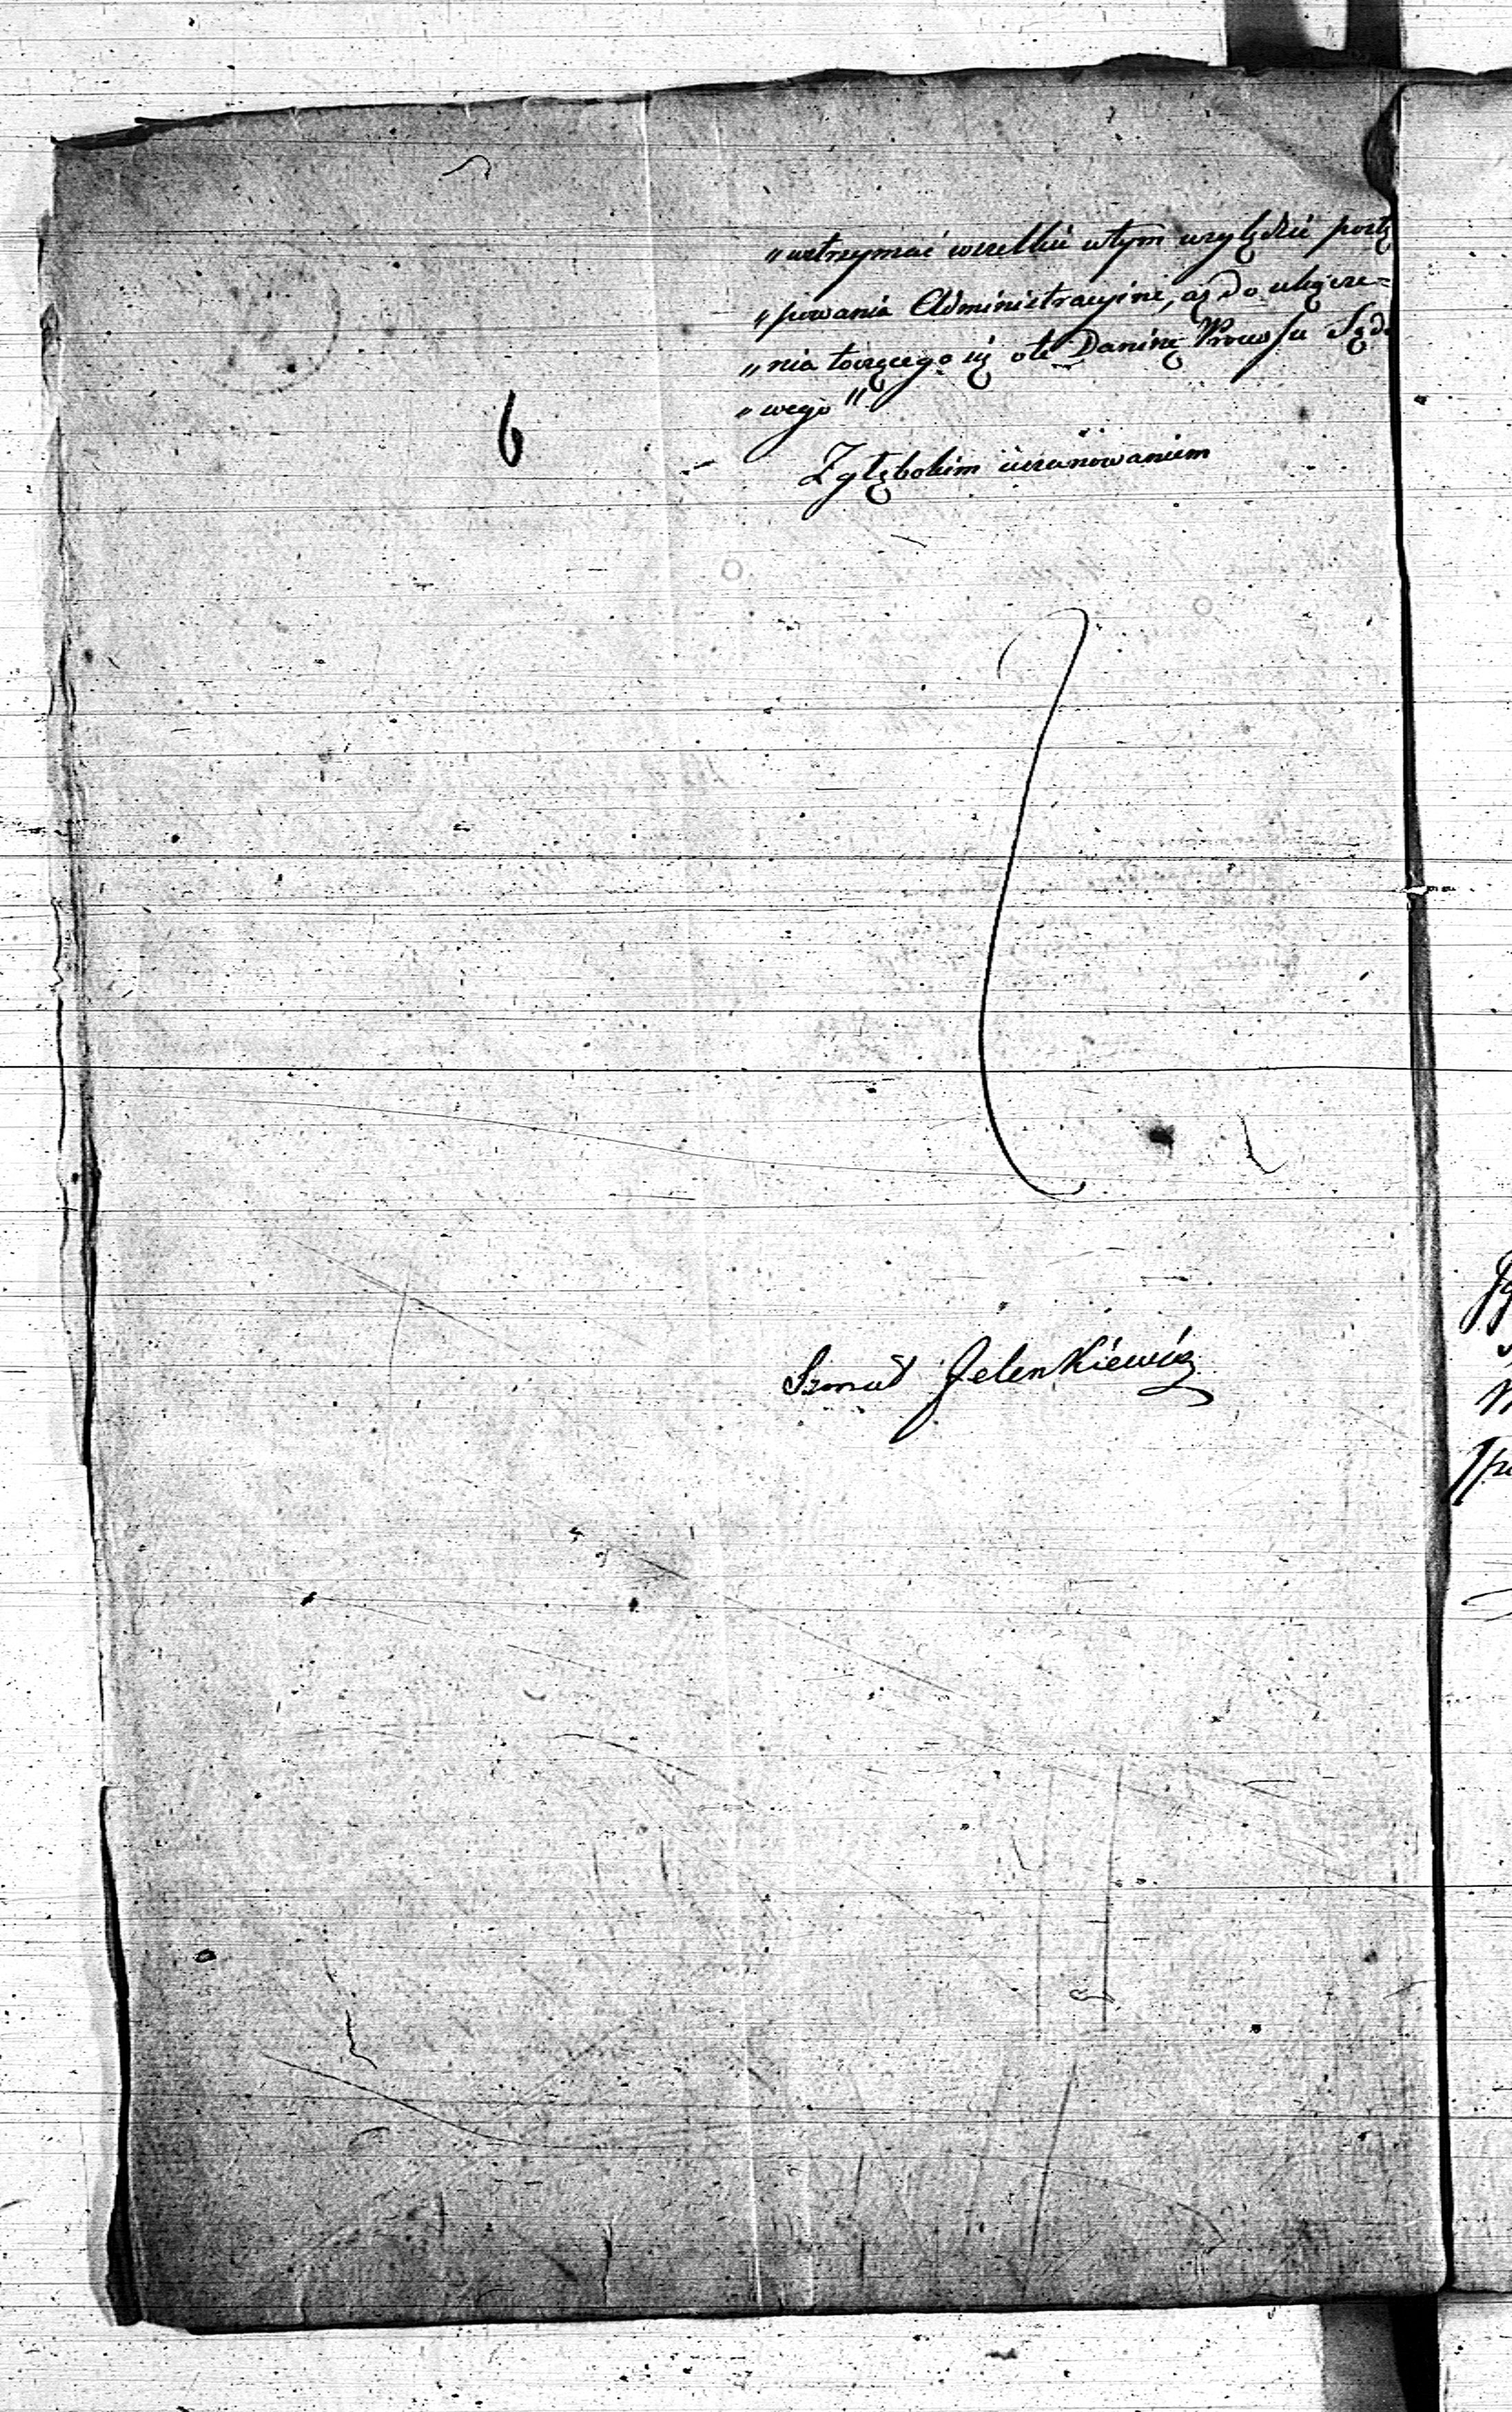 „wstrzymać wszelkie w tym względzie postę
„powania Administracyine, aż do ukącze=
„nia toczącego się o tę Daninę Processu Sądo
„wego"
Z głębokim uszanowaniem
6
Szmul Jelenkiewicz